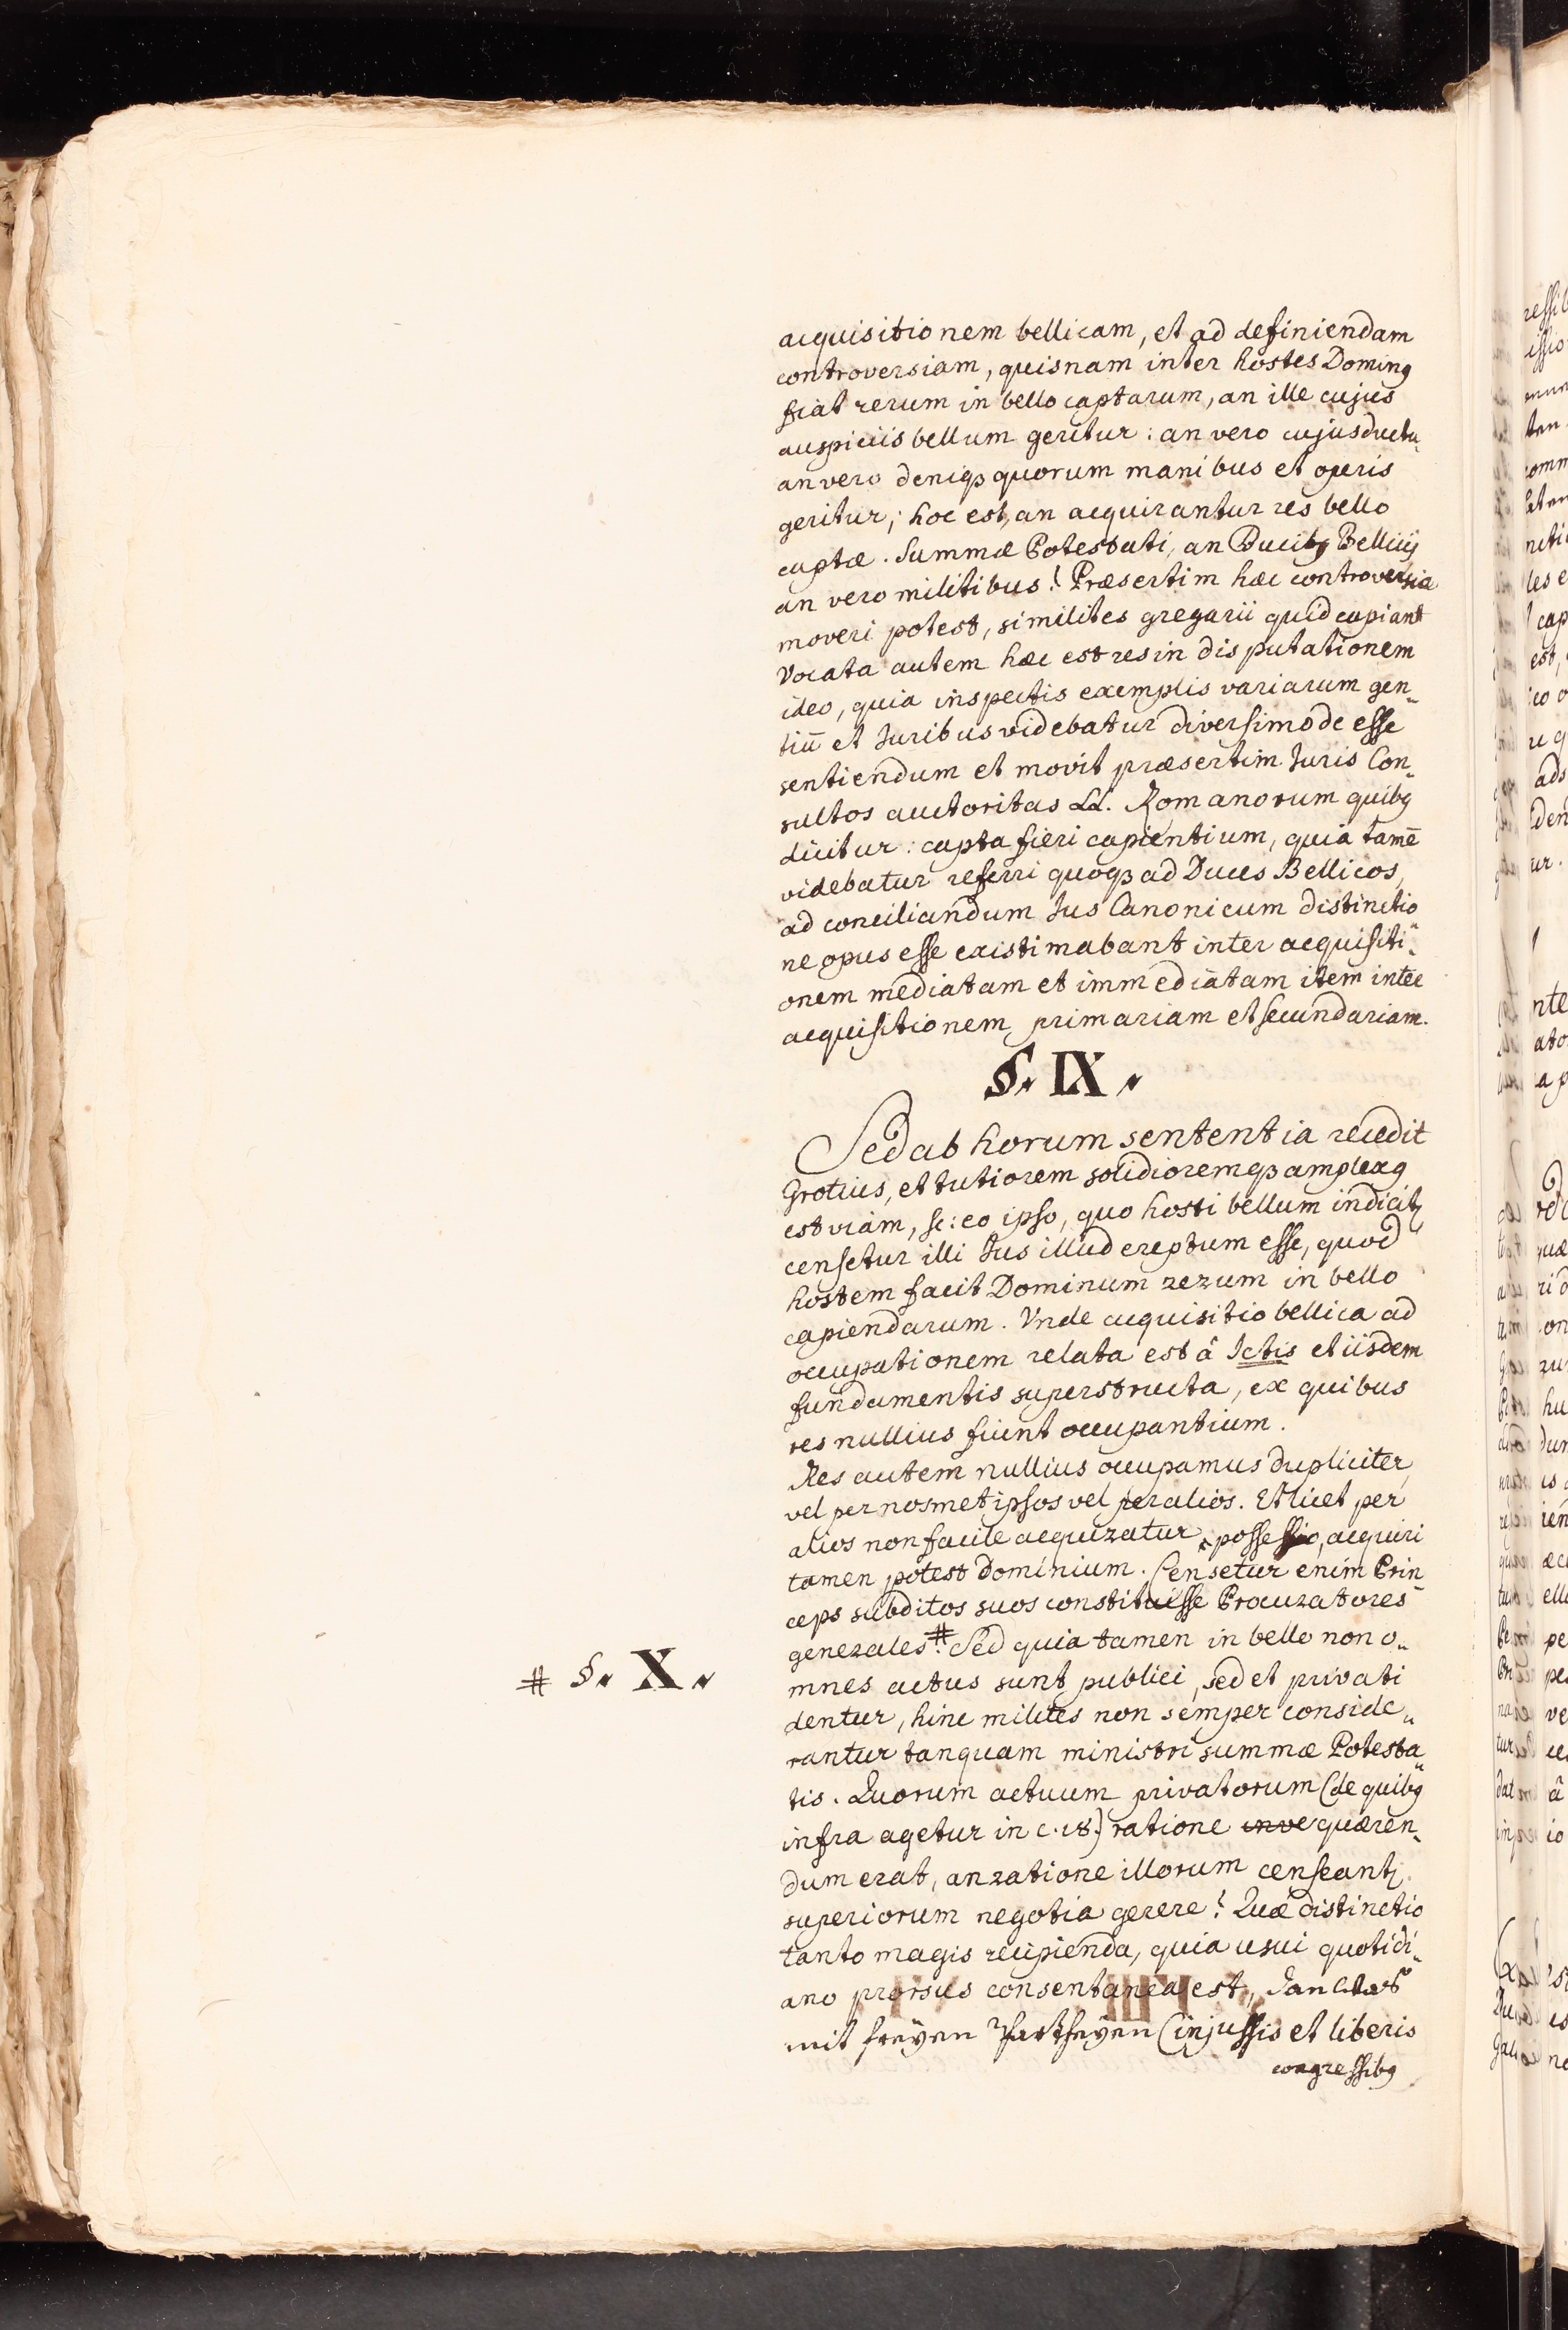 acquisitionem bellicam, et ad definiendam
controversiam, quisnam inter hostes Dominꝰ
fiat rerum in bello captarum, an ille cujus
auspiciis bellum geritur: an vero cujus ductu,
an vero deniqꝫ quorum manibus et operis
geritur; hoc est, an acquirantur res bello
captæ. Summæ Potestati, an Ducibꝰ Bellicis
an vero militibus? Præsertim hæc controversia
moveri potest, si milites gregarii quid capiant
Vocata autem hæc est res in disputationem
ideo, quia inspectis exemplis variarum gen„
tiū et Juribus videbatur diversimode esse
sentiendum et movit præsertim Juris Con„
sultos auctoritas LL. Romanorum quibꝰ
dicitur: capta fieri capientium, quia tamē
videbatur referri quoqꝫ ad Duces Bellicos,
ad conciliandum Jus Canonicum distinctio„
ne opus esse existimabant inter acquisiti„
onem mediatam et immediatam item inter
acquisitionem primariam et secundariam.
§. IX.
Sed ab horum sententia recedit
Grotius, et tutiorem solidioremqꝫ amplexꝰ
est viam, sc: eo ipso, quo hosti bellum indicitꝛ
censetur illi Jus illud ereptum esse, quod
hostem facit Dominum rerum in bello
capiendarum. Vnde acquisitio bellica ad
occupationem relata est â Jctis et iisdem
fundamentis superstructa, ex quibus
res nullius fiunt occupantium.
Res autem nullius occupamus dupliciter,
vel per nosmet ipsos vel per alios. Et licet per
alios non facile acquiratur possessio, acquiri
tamen potest dominium. Censetur enim Prin„
ceps subditos suos constituisse Procuratores
generales. # Sed quia tamen in bello non o„
# §. X.
mnes actus sunt publici, sed et privati
dentur, hinc milites non semper conside„
rantur tanquam ministri summæ Potesta„
tis. Quorum actuum privatorum (de quibꝰ
infra agetur in c. 18.) ratione inve quæren„
dum erat, an ratione illorum censeantꝛ
superiorum negotia gerere? Quæ distinctio
tanto magis recipienda, quia usui quotidi„
ano prorsus consentanea est,
mit freÿen Partheÿen (injussis et liberis
congressibꝰ